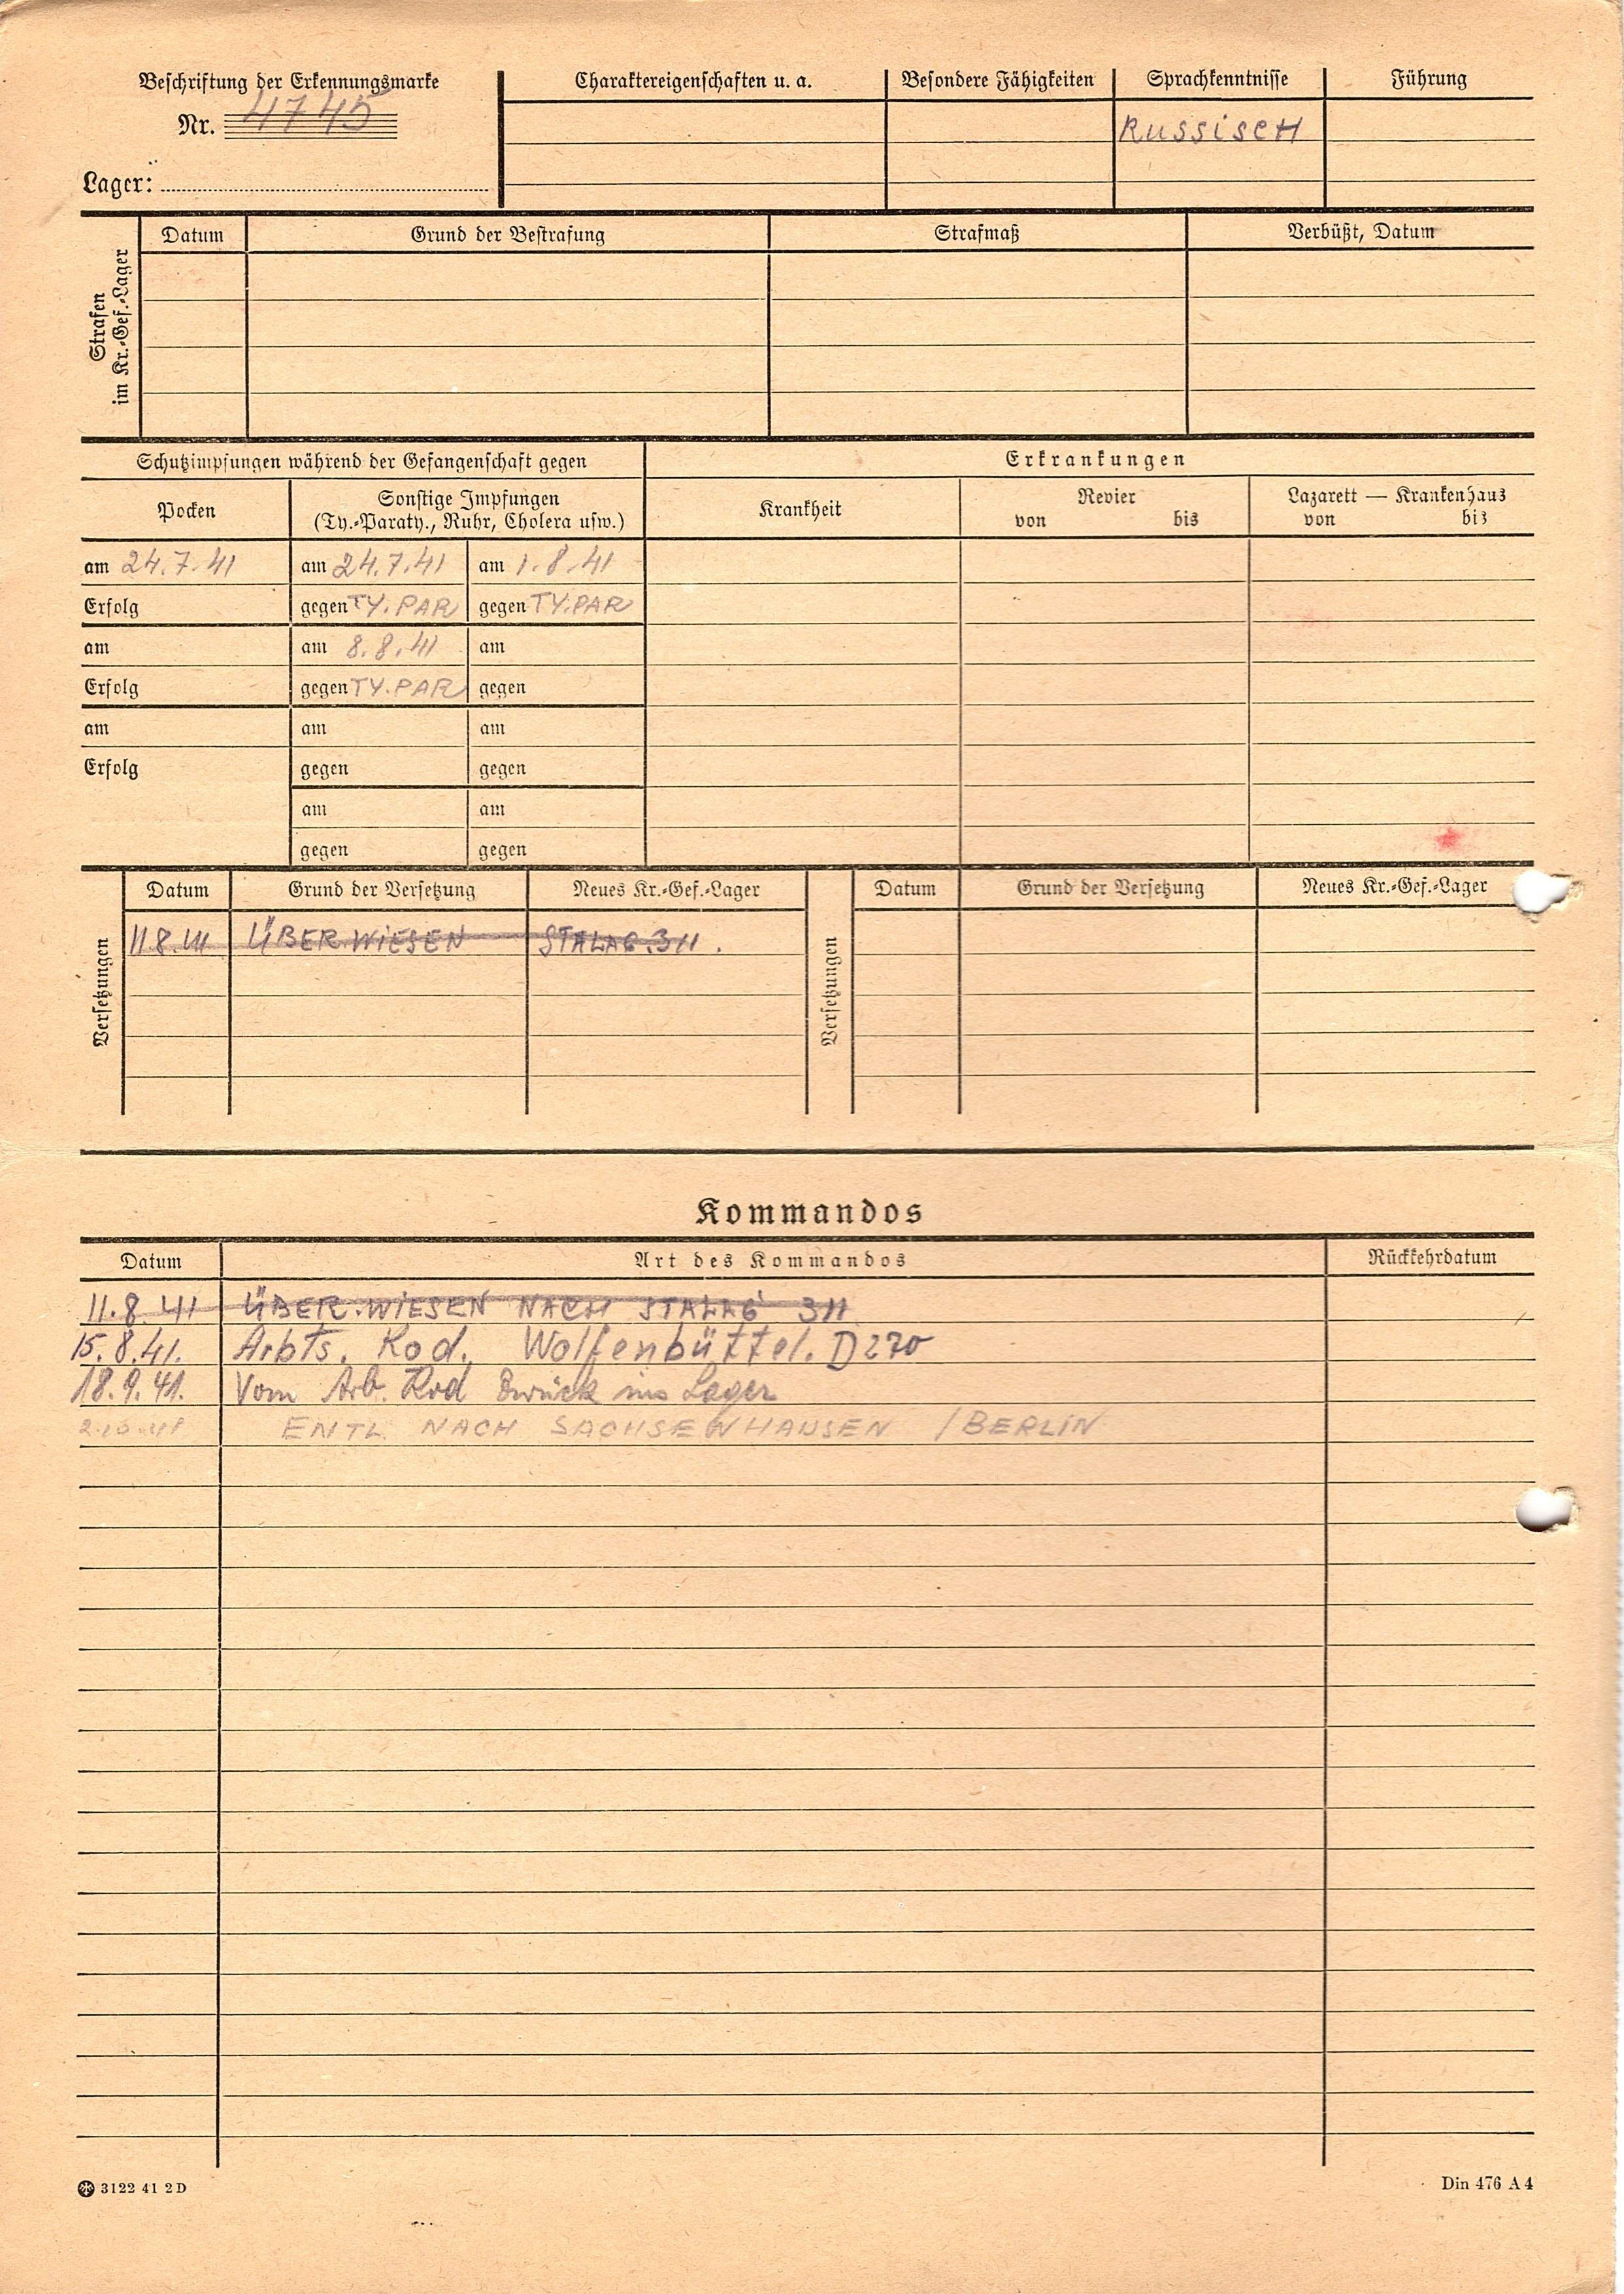 Beschriftung der Erkennungsmarke
Nr. 4745
Lager:
Charaktereigenschaften u. a.
Besondere Fähigkeiten
Sprachkenntnisse
Russisch
Führung
Strafen
im Kr.-Gef.-Lager
Datum
Grund der Bestrafung
Strafmaß
Verbüßt, Datum
Schutzimpfungen während der Gefangenschaft gegen
Erkrankungen
Pocken
Sonstige Impfungen
(Ty.-Paraty., Ruhr, Cholera usw.)
Krankheit
Revier
von bis
Lazarett — Krankenhaus
von bis
am 24.7.41 am 24.7.41 am 1.8.41
Erfolg gegen TY.PAR gegen TY.PAR
am am 8.8.41 am
Erfolg gegen TY.PAR gegen
am am am
Erfolg gegen gegen
am am
gegen gegen
Versetzungen
Datum Grund der Versetzung Neues Kr.-Gef.-Lager
11.8.41 ÜBERWIESEN STALAG.311.
Versetzungen
Datum Grund der Versetzung Neues Kr.-Gef.-Lager
Kommandos
Datum Art des Kommandos Rückkehrdatum
11.8.41 ÜBER.WIESEN NACH STALAG 311
15.8.41. Arbts. Kod. Wolfenbüttel. D270
18.9.41. Vom Arb. Kod zurück ins Lager
2.10.41 ENTL. NACH SACHSENHAUSEN /BERLIN
3122 41 2 D
Din 476 A 4